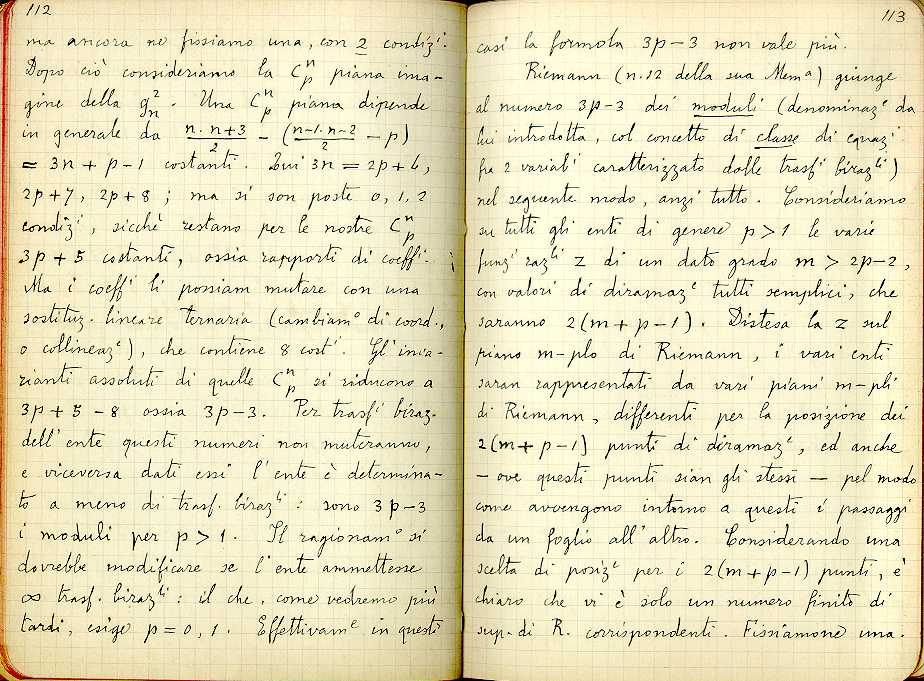 112
ma ancora ne fissiamo una, con 2 condizⁱ.
Dopo ciò consideriamo la Cₚⁿ piana ima-
gine della gₙ². Una Cₚⁿ piana dipende
in generale da n·n+3/2 – (n-1·n-2/2 – p)
= 3n + p – 1 costanti. Qui 3n = 2p+6,
2p+7, 2p+8; ma si son poste 0, 1, 2
condizⁱ, sicchè restano per le nostre Cₚⁿ
3p+5 costanti, ossia rapporti di coeffⁱ.
Ma i coeffⁱ li possiam mutare con una
sostituz. lineare ternaria (cambiamᵒ di coord.,
o collineazᵉ), che contiene 8 costⁱ. Gl'inva-
rianti assoluti di quelle Cₚⁿ si riducono a
3p+5-8 ossia 3p-3. Per trasfⁱ biraz.
dell'ente questi numeri non muteranno,
e viceversa dati essi l'ente è determina-
to a meno di trasf. birazˡⁱ: sono 3p-3
i moduli per p > 1. Il ragionamᵒ si
dovrebbe modificare se l'ente ammettesse
∞ trasf. birazˡⁱ: il che, come vedremo più
tardi, esige p = 0, 1. Effettivamᵉ in questi
113
casi la formola 3p-3 non vale più.
Riemann (n.12 della sua Memᵃ) giunge
al numero 3p-3 dei moduli (denominazᵉ da
lui introdotta, col concetto di classe di equazⁱ
fra 2 variabⁱ caratterizzato dalle trasfⁱ birazˡⁱ)
nel seguente modo, anzi tutto. Consideriamo
su tutti gli enti di genere p > 1 le varie
funzⁱ razˡⁱ z di un dato grado m > 2p-2,
con valori di diramazᵉ tutti semplici, che
saranno 2(m+p-1). Distesa la z sul
piano m-plo di Riemann, i vari enti
saran rappresentati da vari piani m-pli
di Riemann, differenti per la posizione dei
2(m+p-1) punti di diramazᵉ, ed anche
– ove questi punti sian gli stessi – pel modo
come avvengono intorno a questi i passaggi
da un foglio all'altro. Considerando una
scelta di posizᵉ per i 2(m+p-1) punti, è
chiaro che vi è solo un numero finito di
sup. di R. corrispondenti. Fissiamone una.